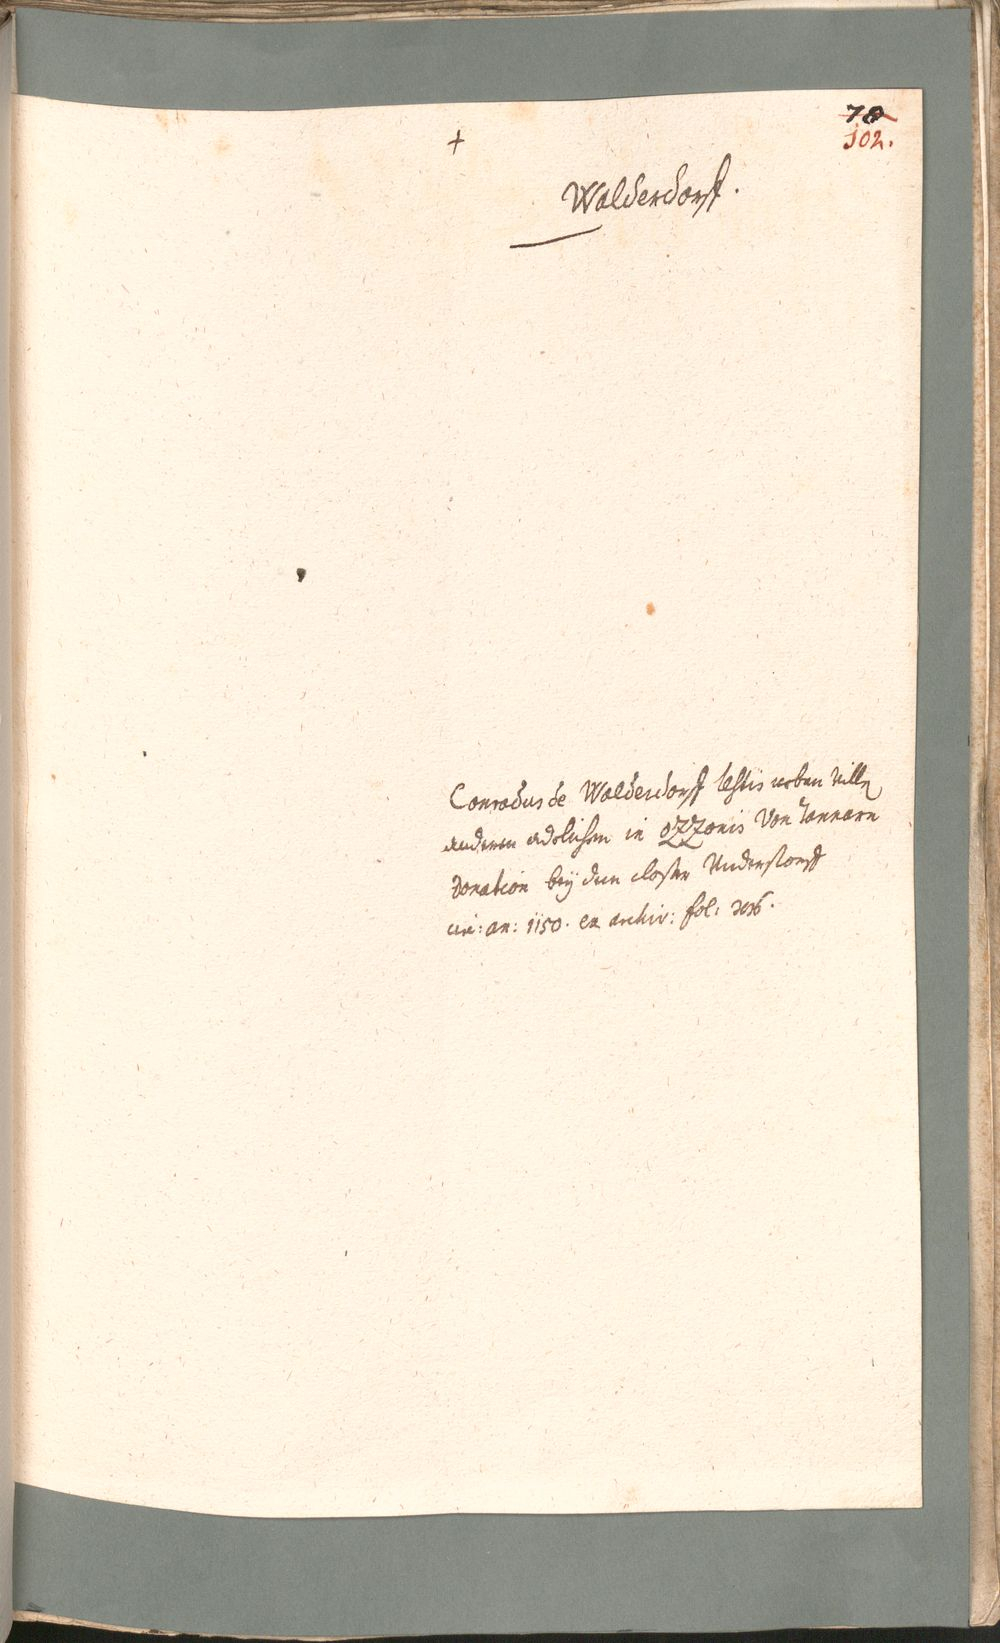 78
102.
+
Walderdorff.
Conradus de Walderdorff testis neben ville
anderen adelichen in oZZonis von
Donation beÿ dem closter Understorff
cir: an: 1150. ex archiv: fol: